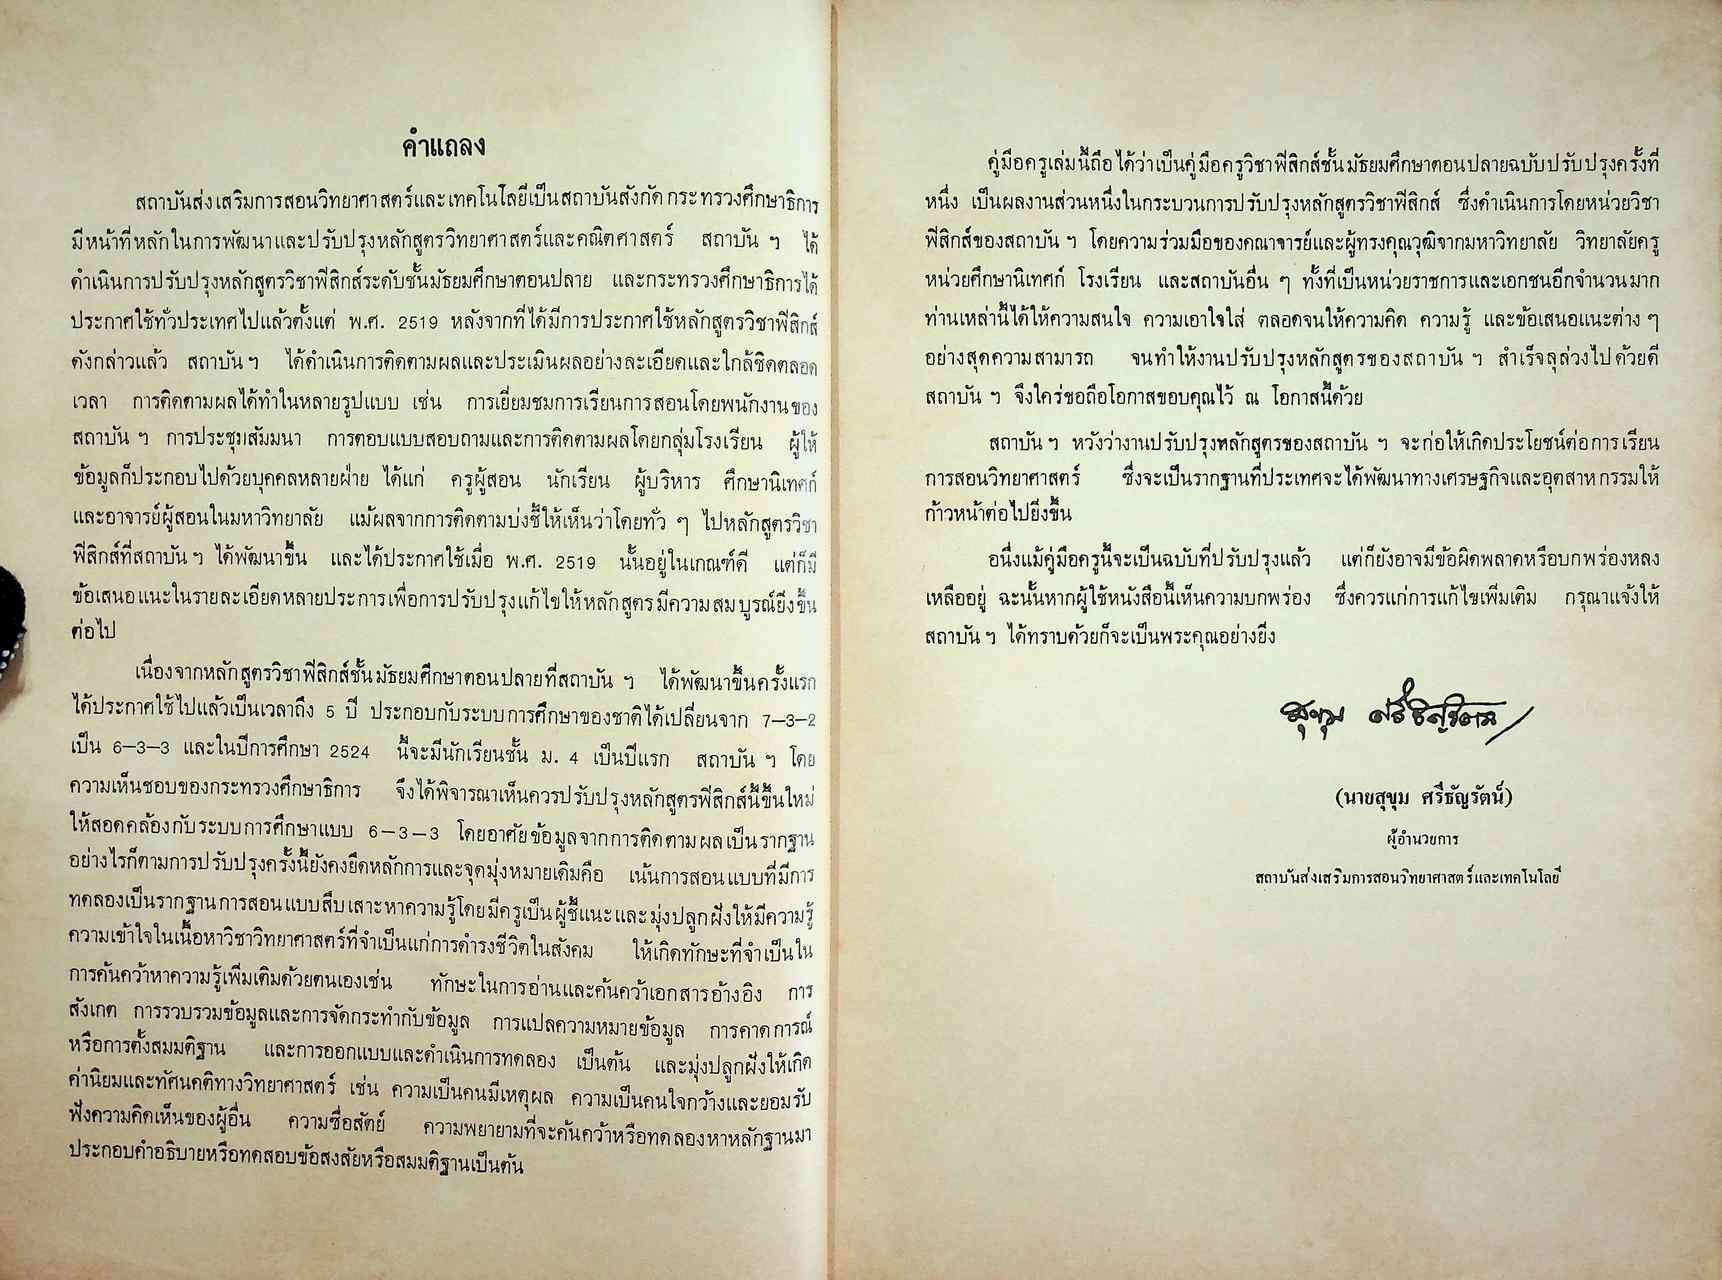 คำแถลง
สถาบันส่งเสริมการสอนวิทยาศาสตร์และเทคโนโลยีเป็นสถาบันสังกัดกระทรวงศึกษาธิการ
มีหน้าที่หลักในการพัฒนาและปรับปรุงหลักสูตรวิทยาศาสตร์และคณิตศาสตร์ สถาบัน ฯ ได้
ดำเนินการปรับปรุงหลักสูตรวิชาฟิสิกส์ระดับชั้นมัธยมศึกษาตอนปลาย และกระทรวงศึกษาธิการได้
ประกาศใช้ทั่วประเทศไปแล้วตั้งแต่ พ.ศ. 2519 หลังจากที่ได้มีการประกาศใช้หลักสูตรวิชาฟิสิกส์
ดังกล่าวแล้ว สถาบัน ฯ ได้ดำเนินการติดตามผลและประเมินผลอย่างละเอียดและใกล้ชิดตลอด
เวลา การติดตามผลได้ทำในหลายรูปแบบ เช่น การเยี่ยมชมการเรียนการสอนโดยพนักงานของ
สถาบัน ฯ การประชุมสัมมนา การตอบแบบสอบถามและการติดตามผลโดยกลุ่มโรงเรียน ผู้ให้
ข้อมูลก็ประกอบไปด้วยบุคคลหลายฝ่าย ได้แก่ ครูผู้สอน นักเรียน ผู้บริหาร ศึกษานิเทศก์
และอาจารย์ผู้สอนในมหาวิทยาลัย แม้ผลจากการติดตามบ่งชี้ให้เห็นว่าโดยทั่ว ๆ ไปหลักสูตรวิชา
ฟิสิกส์ที่สถาบัน ฯ ได้พัฒนาขึ้น และได้ประกาศใช้เมื่อ พ.ศ. 2519 นั้นอยู่ในเกณฑ์ดี แต่ก็มี
ข้อเสนอแนะในรายละเอียดหลายประการเพื่อการปรับปรุงแก้ไขให้หลักสูตรมีความสมบูรณ์ยิ่งขึ้น
ต่อไป
เนื่องจากหลักสูตรวิชาฟิสิกส์ชั้นมัธยมศึกษาตอนปลายที่สถาบัน ฯ ได้พัฒนาขึ้นครั้งแรก
ได้ประกาศใช้ไปแล้วเป็นเวลาถึง 5 ปี ประกอบกับระบบการศึกษาของชาติได้เปลี่ยนจาก 7–3–2
เป็น 6–3–3 และในปีการศึกษา 2524 นี้จะมีนักเรียนชั้น ม. 4 เป็นปีแรก สถาบัน ฯ โดย
ความเห็นชอบของกระทรวงศึกษาธิการ จึงได้พิจารณาเห็นควรปรับปรุงหลักสูตรฟิสิกส์นี้ขึ้นใหม่
ให้สอดคล้องกับระบบการศึกษาแบบ 6–3–3 โดยอาศัยข้อมูลจากการติดตามผลเป็นรากฐาน
อย่างไรก็ตามการปรับปรุงครั้งนี้ยังคงยึดหลักการและจุดมุ่งหมายเดิมคือ เน้นการสอนแบบที่มีการ
ทดลองเป็นรากฐานการสอนแบบสืบเสาะหาความรู้โดยมีครูเป็นผู้ชี้แนะและมุ่งปลูกฝังให้มีความรู้
ความเข้าใจในเนื้อหาวิชาวิทยาศาสตร์ที่จำเป็นแก่การดำรงชีวิตในสังคม ให้เกิดทักษะที่จำเป็นใน
การค้นคว้าหาความรู้เพิ่มเติมด้วยตนเองเช่น ทักษะในการอ่านและค้นคว้าเอกสารอ้างอิง การ
สังเกต การรวบรวมข้อมูลและการจัดกระทำกับข้อมูล การแปลความหมายข้อมูล การคาดการณ์
หรือการตั้งสมมติฐาน และการออกแบบและดำเนินการทดลอง เป็นต้น และมุ่งปลูกฝังให้เกิด
ค่านิยมและทัศนคติทางวิทยาศาสตร์ เช่น ความเป็นคนมีเหตุผล ความเป็นคนใจกว้างและยอมรับ
ฟังความคิดเห็นของผู้อื่น ความซื่อสัตย์ ความพยายามที่จะค้นคว้าหรือทดลองหาหลักฐานมา
ประกอบคำอธิบายหรือทดสอบข้อสงสัยหรือสมมติฐานเป็นต้น
คู่มือครูเล่มนี้ถือได้ว่าเป็นคู่มือครูวิชาฟิสิกส์ชั้นมัธยมศึกษาตอนปลายฉบับปรับปรุงครั้งที่
หนึ่ง เป็นผลงานส่วนหนึ่งในกระบวนการปรับปรุงหลักสูตรวิชาฟิสิกส์ ซึ่งดำเนินการโดยหน่วยวิชา
ฟิสิกส์ของสถาบัน ฯ โดยความร่วมมือของคณาจารย์และผู้ทรงคุณวุฒิจากมหาวิทยาลัย วิทยาลัยครู
หน่วยศึกษานิเทศก์ โรงเรียน และสถาบันอื่น ๆ ทั้งที่เป็นหน่วยราชการและเอกชนอีกจำนวนมาก
ท่านเหล่านี้ได้ให้ความสนใจ ความเอาใจใส่ ตลอดจนให้ความคิด ความรู้ และข้อเสนอแนะต่าง ๆ
อย่างสุดความสามารถ จนทำให้งานปรับปรุงหลักสูตรของสถาบัน ฯ สำเร็จลุล่วงไปด้วยดี
สถาบัน ฯ จึงใคร่ขอถือโอกาสขอบคุณไว้ ณ โอกาสนี้ด้วย
สถาบัน ฯ หวังว่างานปรับปรุงหลักสูตรของสถาบัน ฯ จะก่อให้เกิดประโยชน์ต่อการเรียน
การสอนวิทยาศาสตร์ ซึ่งจะเป็นรากฐานที่ประเทศจะได้พัฒนาทางเศรษฐกิจและอุตสาหกรรมให้
ก้าวหน้าต่อไปยิ่งขึ้น
อนึ่งแม้คู่มือครูนี้จะเป็นฉบับที่ปรับปรุงแล้ว แต่ก็ยังอาจมีข้อผิดพลาดหรือบกพร่องหลง
เหลืออยู่ ฉะนั้นหากผู้ใช้หนังสือนี้เห็นความบกพร่อง ซึ่งควรแก่การแก้ไขเพิ่มเติม กรุณาแจ้งให้
สถาบัน ฯ ได้ทราบด้วยก็จะเป็นพระคุณอย่างยิ่ง
สุขุม ศรีธัญรัตน์
(นายสุขุม ศรีธัญรัตน์)
ผู้อำนวยการ
สถาบันส่งเสริมการสอนวิทยาศาสตร์และเทคโนโลยี